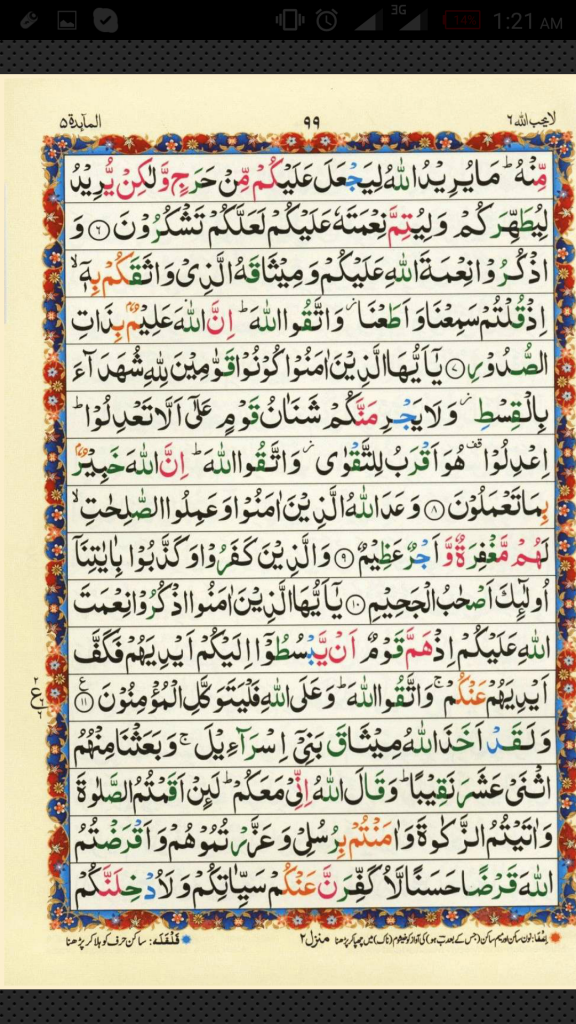 3G 14% 1:21 AM
لایحب الله ۶ ۹۹ المآئدة ۵
مِّنْهُ ؕ مَا یُرِیْدُ اللّٰهُ لِیَجْعَلَ عَلَیْكُمْ مِّنْ حَرَجٍ وَّلٰكِنْ یُّرِیْدُ
لِیُطَهِّرَكُمْ وَلِیُتِمَّ نِعْمَتَهٗ عَلَیْكُمْ لَعَلَّكُمْ تَشْكُرُوْنَ ﴿۶﴾ وَ
اذْكُرُوْا نِعْمَةَ اللّٰهِ عَلَیْكُمْ وَمِیْثَاقَهُ الَّذِیْ وَاثَقَكُمْ بِهٖۤ ۙ
اِذْ قُلْتُمْ سَمِعْنَا وَاَطَعْنَا ؗ وَاتَّقُوا اللّٰهَ ؕ اِنَّ اللّٰهَ عَلِیْمٌۢ بِذَاتِ
الصُّدُوْرِ ﴿۷﴾ یٰۤاَیُّهَا الَّذِیْنَ اٰمَنُوْا كُوْنُوْا قَوّٰمِیْنَ لِلّٰهِ شُهَدَآءَ
بِالْقِسْطِ ؗ وَلَا یَجْرِمَنَّكُمْ شَنَاٰنُ قَوْمٍ عَلٰۤی اَلَّا تَعْدِلُوْا ؕ
اِعْدِلُوْا قف هُوَ اَقْرَبُ لِلتَّقْوٰی ؗ وَاتَّقُوا اللّٰهَ ؕ اِنَّ اللّٰهَ خَبِیْرٌۢ
بِمَا تَعْمَلُوْنَ ﴿۸﴾ وَعَدَ اللّٰهُ الَّذِیْنَ اٰمَنُوْا وَعَمِلُوا الصّٰلِحٰتِ ۙ
لَهُمْ مَّغْفِرَةٌ وَّاَجْرٌ عَظِیْمٌ ﴿۹﴾ وَالَّذِیْنَ كَفَرُوْا وَكَذَّبُوْا بِاٰیٰتِنَاۤ
اُولٰٓئِكَ اَصْحٰبُ الْجَحِیْمِ ﴿۱۰﴾ یٰۤاَیُّهَا الَّذِیْنَ اٰمَنُوا اذْكُرُوْا نِعْمَتَ
اللّٰهِ عَلَیْكُمْ اِذْ هَمَّ قَوْمٌ اَنْ یَّبْسُطُوْۤا اِلَیْكُمْ اَیْدِیَهُمْ فَكَفَّ
اَیْدِیَهُمْ عَنْكُمْ ۚ وَاتَّقُوا اللّٰهَ ؕ وَعَلَی اللّٰهِ فَلْیَتَوَكَّلِ الْمُؤْمِنُوْنَ ﴿۱۱﴾ ع
وَلَقَدْ اَخَذَ اللّٰهُ مِیْثَاقَ بَنِیْۤ اِسْرَآءِیْلَ ۚ وَبَعَثْنَا مِنْهُمُ
اثْنَیْ عَشَرَ نَقِیْبًا ؕ وَقَالَ اللّٰهُ اِنِّیْ مَعَكُمْ ؕ لَئِنْ اَقَمْتُمُ الصَّلٰوةَ
وَاٰتَیْتُمُ الزَّكٰوةَ وَاٰمَنْتُمْ بِرُسُلِیْ وَعَزَّرْتُمُوْهُمْ وَاَقْرَضْتُمُ
اللّٰهَ قَرْضًا حَسَنًا لَّاُكَفِّرَنَّ عَنْكُمْ سَیِّاٰتِكُمْ وَلَاُدْخِلَنَّكُمْ
اخفا: نون ساکن اور میم ساکن (جس کے بعد ب ہو) کی آواز کو خیشوم (ناک) میں چھپا کر پڑھنا منزل ۲ قلقلہ: ساکن حرف کو ہلا کر پڑھنا